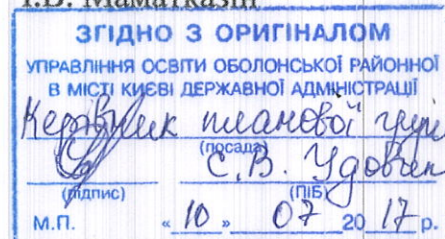 І.В. Маматказіна
ЗГІДНО З ОРИГІНАЛОМ
УПРАВЛІННЯ ОСВІТИ ОБОЛОНСЬКОЇ РАЙОННОЇ
В МІСТІ КИЄВІ ДЕРЖАВНОЇ АДМІНІСТРАЦІЇ
Керівник планової групи
(посада)
С.В. Удовен
(підпис) (ПІБ)
М.П. « 10 » 07 20 17 р.